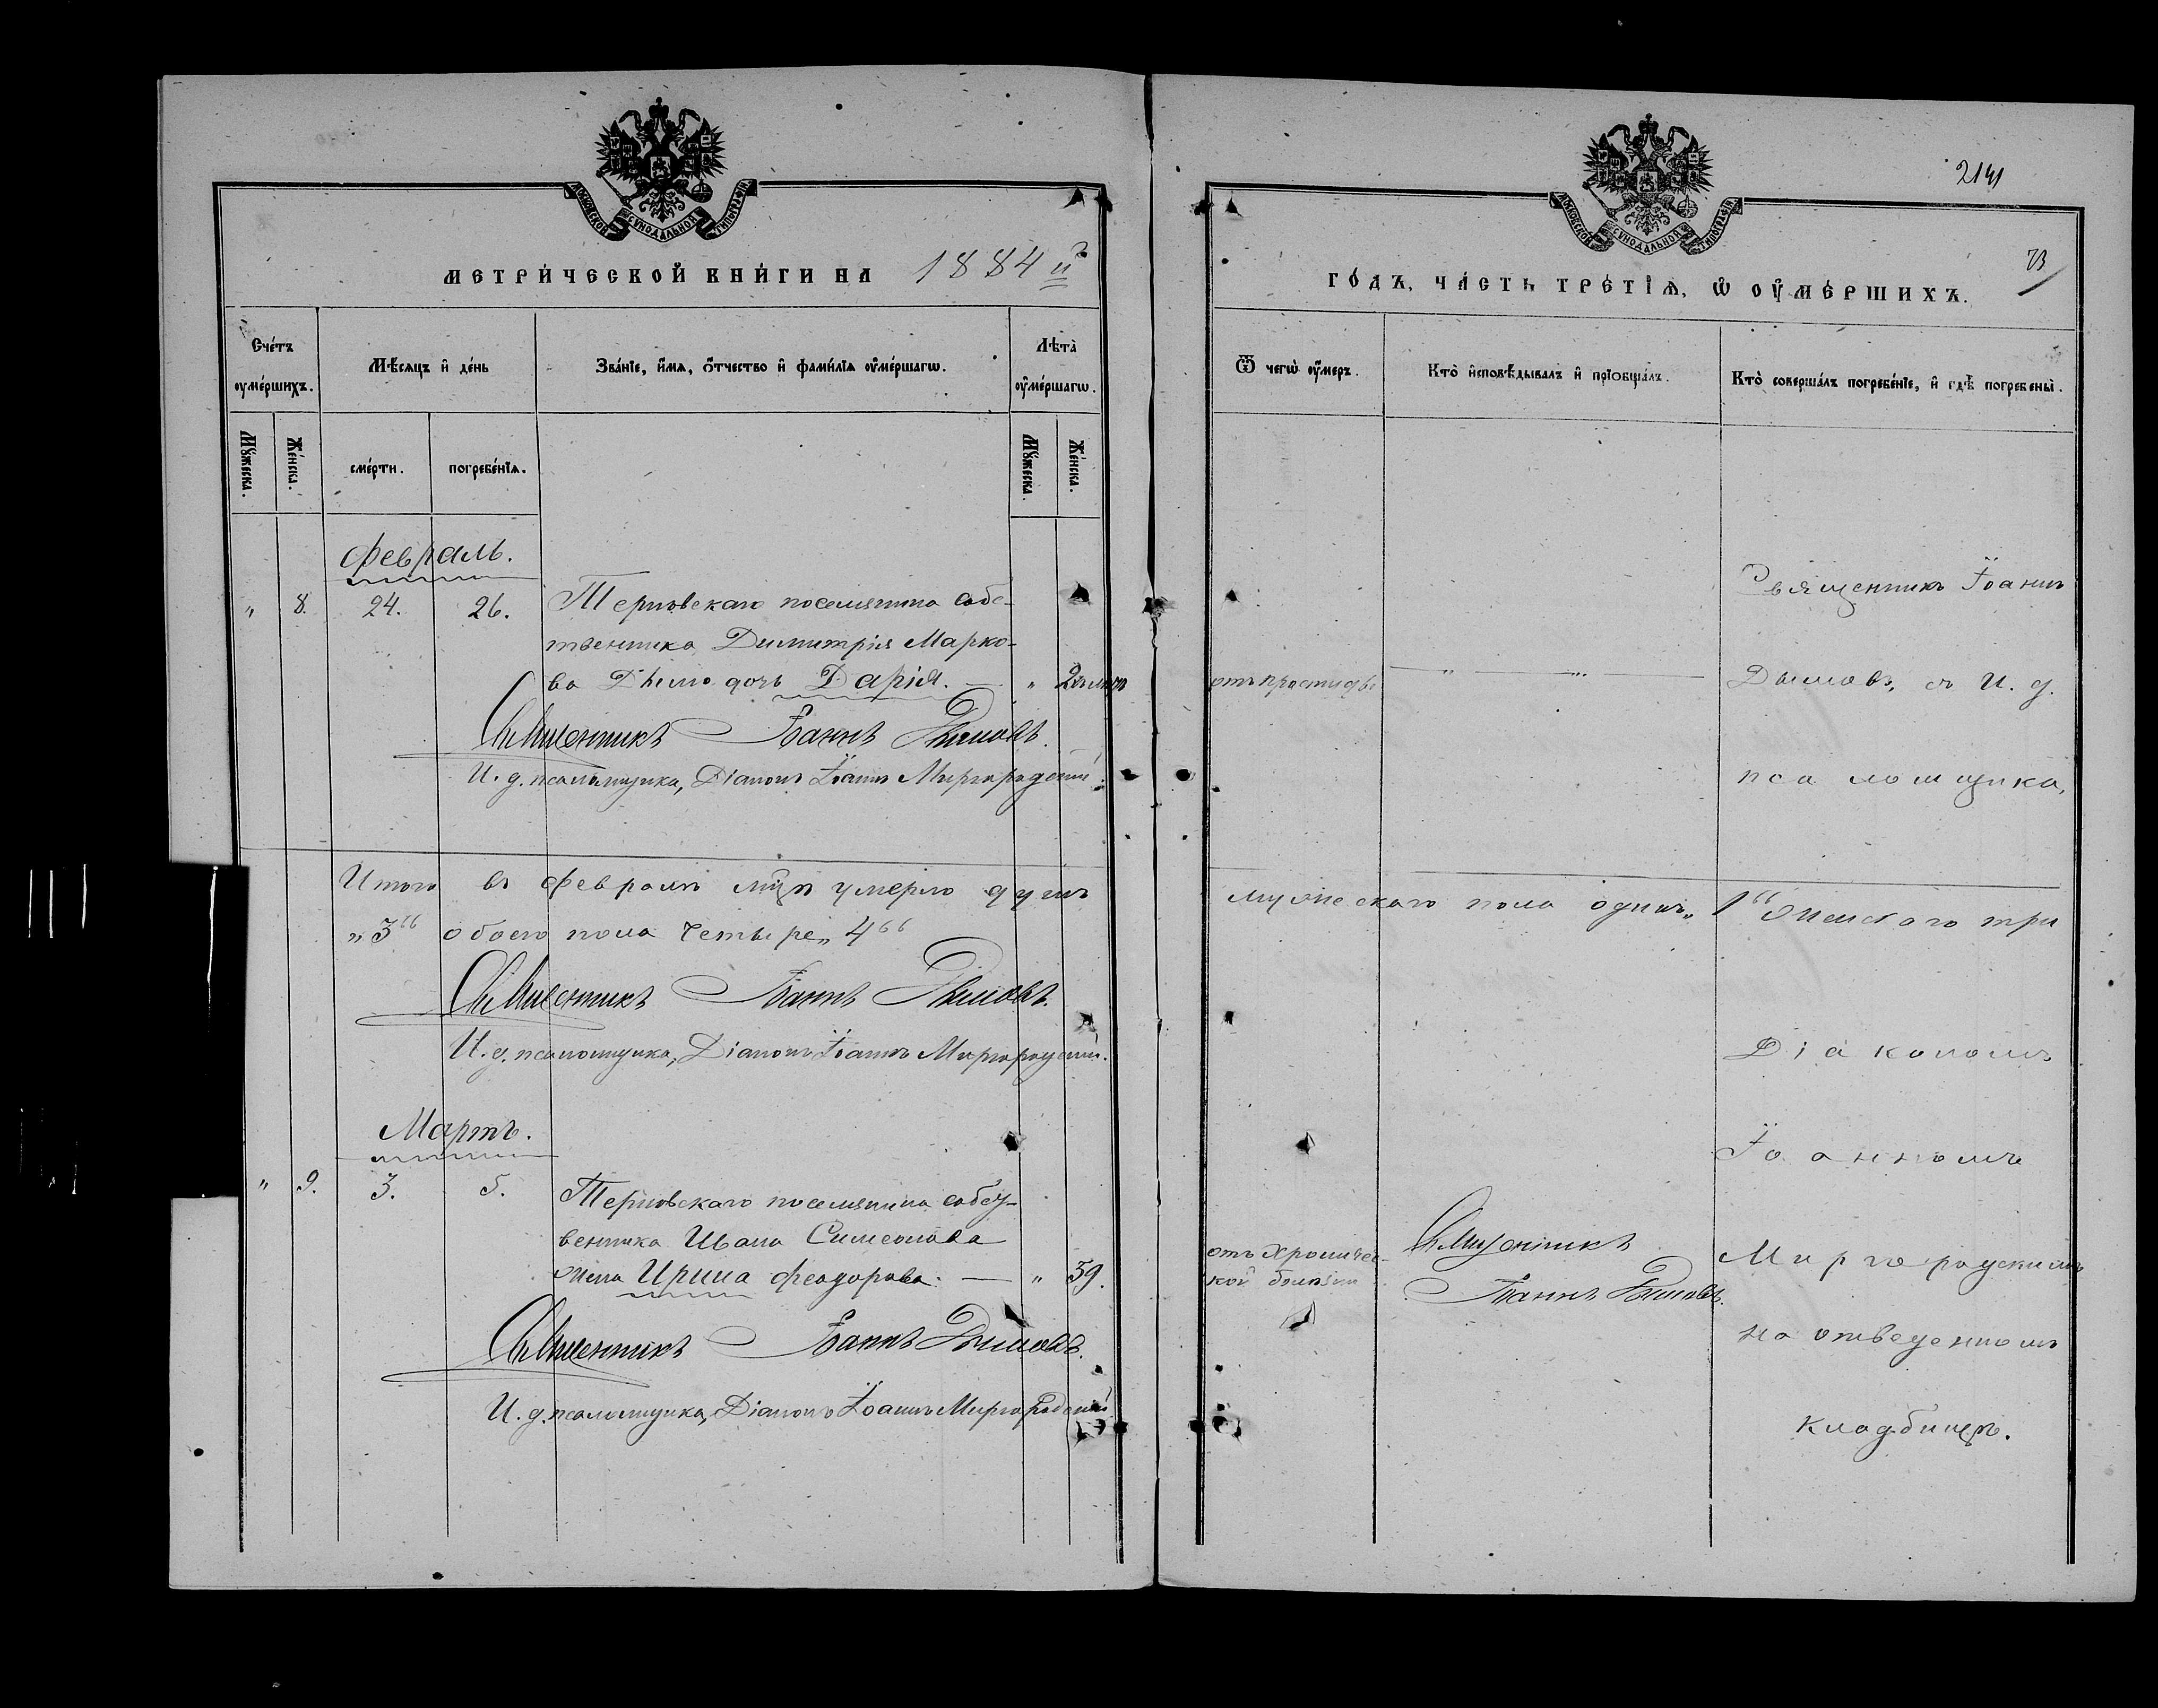 МОСКОВСКОЙ СѴНОДАЛЬНОЙ ТИПОГРАФІИ
МЕТРИ́ЧЕСКОЙ КНИ́ГИ НА 1884 й
Сче́тъ оумершихъ.
Мѣ́сяцъ и де́нь
Зва́нїе, и́мя, о́тчество и фами́лїя оуме́ршагѡ.
Лѣта̀ оуме́ршагѡ.
Мꙋ́жеска.
Же́нска.
сме́рти.
погребе́нїя.
Мꙋ́жеска.
Же́нска.
Февраль.
" 8. 24. 26. Терновскаго поселянина собс-
твенника Димитрія Марко-
ва дочь Дарія. — "
Священникъ Іоаннъ Дымовъ.
И. д. псаломщика, Діаконъ Іоаннъ Миргородскій.
Итого въ Февралѣ м҃цѣ умерло душъ
„3“ обоего пола четыре „4“
Священникъ Іоаннъ Дымовъ.
И. д. псаломщика, Діаконъ Іоаннъ Миргородскій.
Мартъ.
" 9. 3. 5. Терновскаго поселянина собст-
венника Ивана Симеонова
жена Ирина Феодорова. — " 59.
Священникъ Іоаннъ Дымовъ.
И. д. псаломщика, Діаконъ Іоаннъ Миргородскій
МОСКОВСКОЙ СѴНОДАЛЬНОЙ ТИПОГРАФІИ
73
ГО́ДЪ, ЧА́СТЬ ТРЕ́ТЇѦ, Ѡ ОУМЕ́РШИХЪ.
Ѿ чегѡ̀ оу́меръ.
Кто̀ и҆сповѣ́дывалъ и҆ прїобща́лъ.
Кто̀ соверша́лъ погребе́нїе, и҆ гдѣ̀ погребены̀.
Священникъ Іоаннъ
отъ простуды — " — " —
Дымовъ, съ И. д.
псаломщика,
мужескаго пола одинъ „1“ женскаго три
Діакономъ
Іоанномъ
отъ хроничес-
кой болѣзни
Священникъ
Іоаннъ Дымовъ.
Миргородскимъ
на отведенномъ
кладбищѣ.